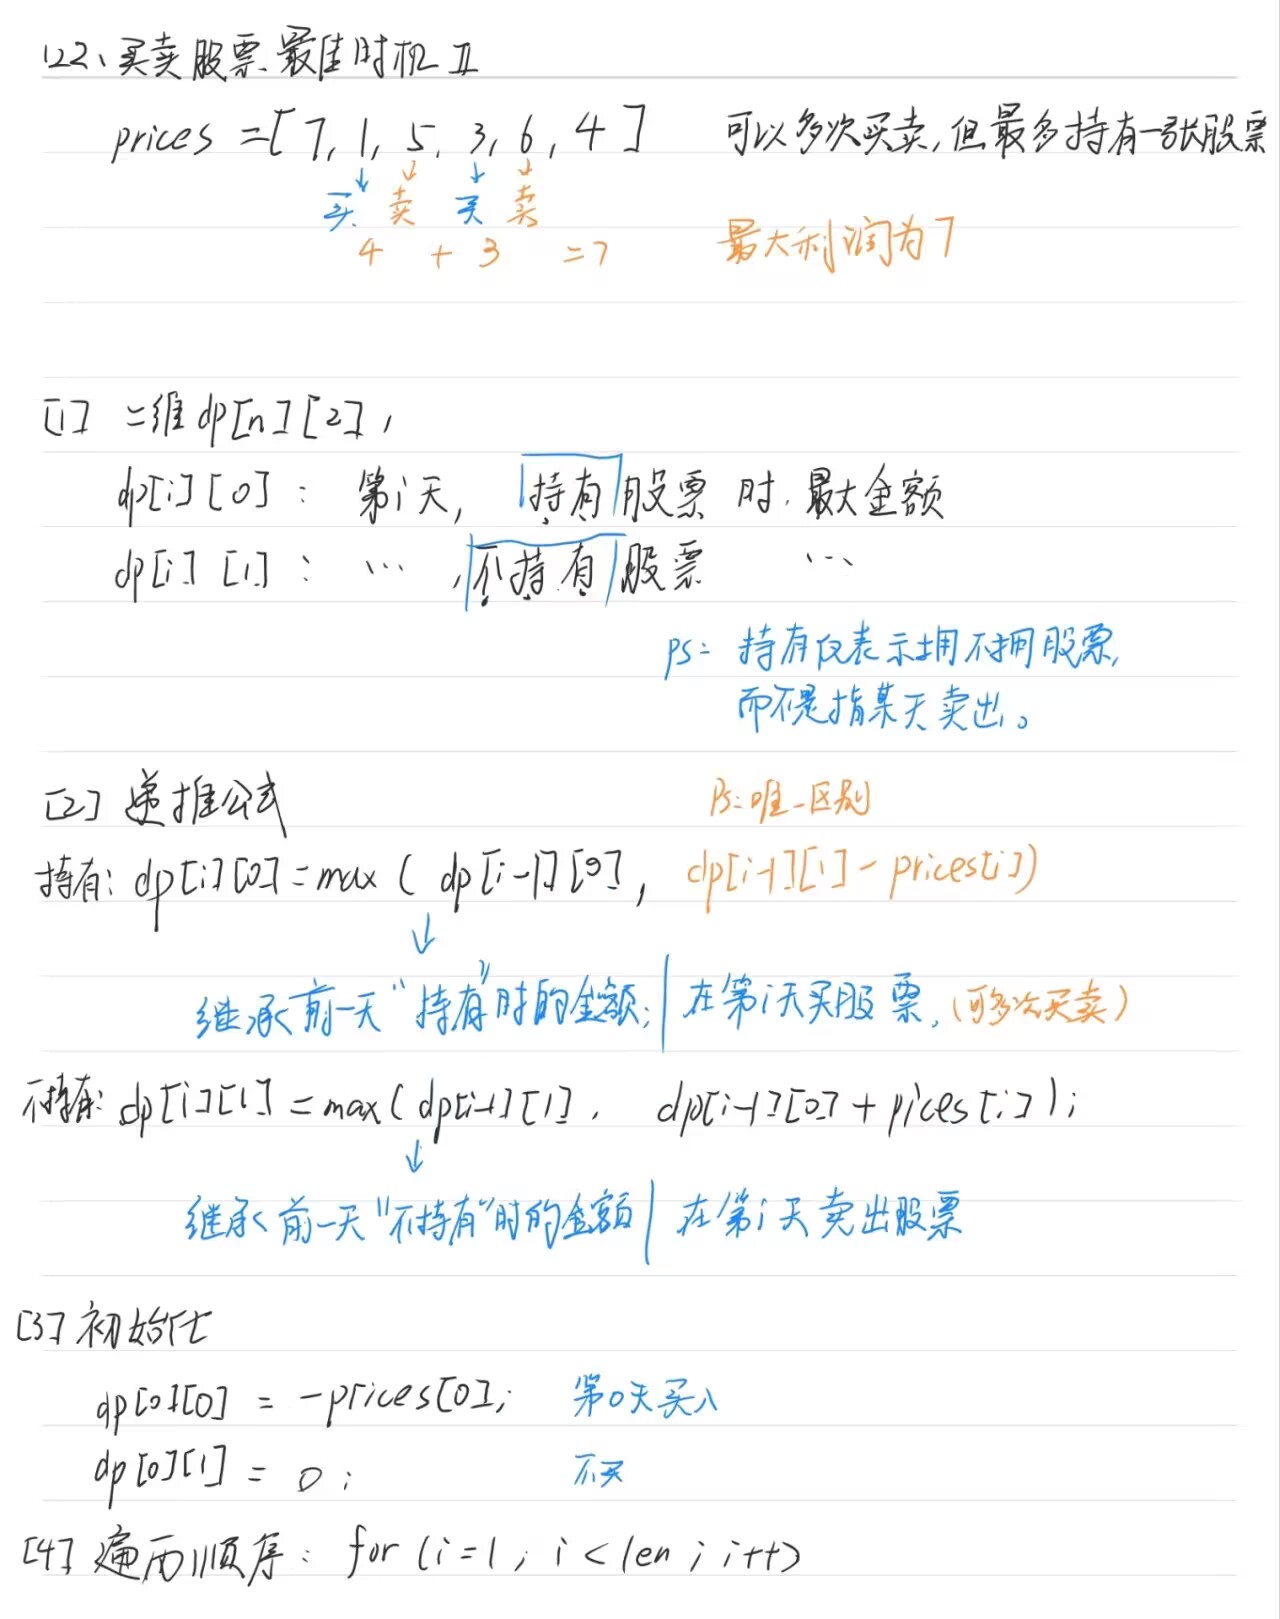 122、买卖股票最佳时机 II
prices = [7, 1, 5, 3, 6, 4] 可以多次买卖,但最多持有一张股票
买 卖 买 卖
4 + 3 = 7 最大利润为7
[1] 二维dp[n][2],
dp[i][0]: 第i天, 持有股票时,最大金额
dp[i][1]: ... ,不持有股票 ...
ps: 持有仅表示拥不拥股票,
而不是指某天卖出。
[2] 递推公式 Ps:唯一区别
持有: dp[i][0] = max ( dp[i-1][0], dp[i-1][1] - prices[i])
继承前一天“持有”时的金额; | 在第i天买股票, (可多次买卖)
不持有: dp[i][1] = max( dp[i-1][1], dp[i-1][0] + pices[i]);
继承前一天“不持有”时的金额 | 在第i天卖出股票
[3] 初始化
dp[0][0] = -prices[0]; 第0天买入
dp[0][1] = 0; 不买
[4] 遍历顺序: for (i=1; i<len; i++)